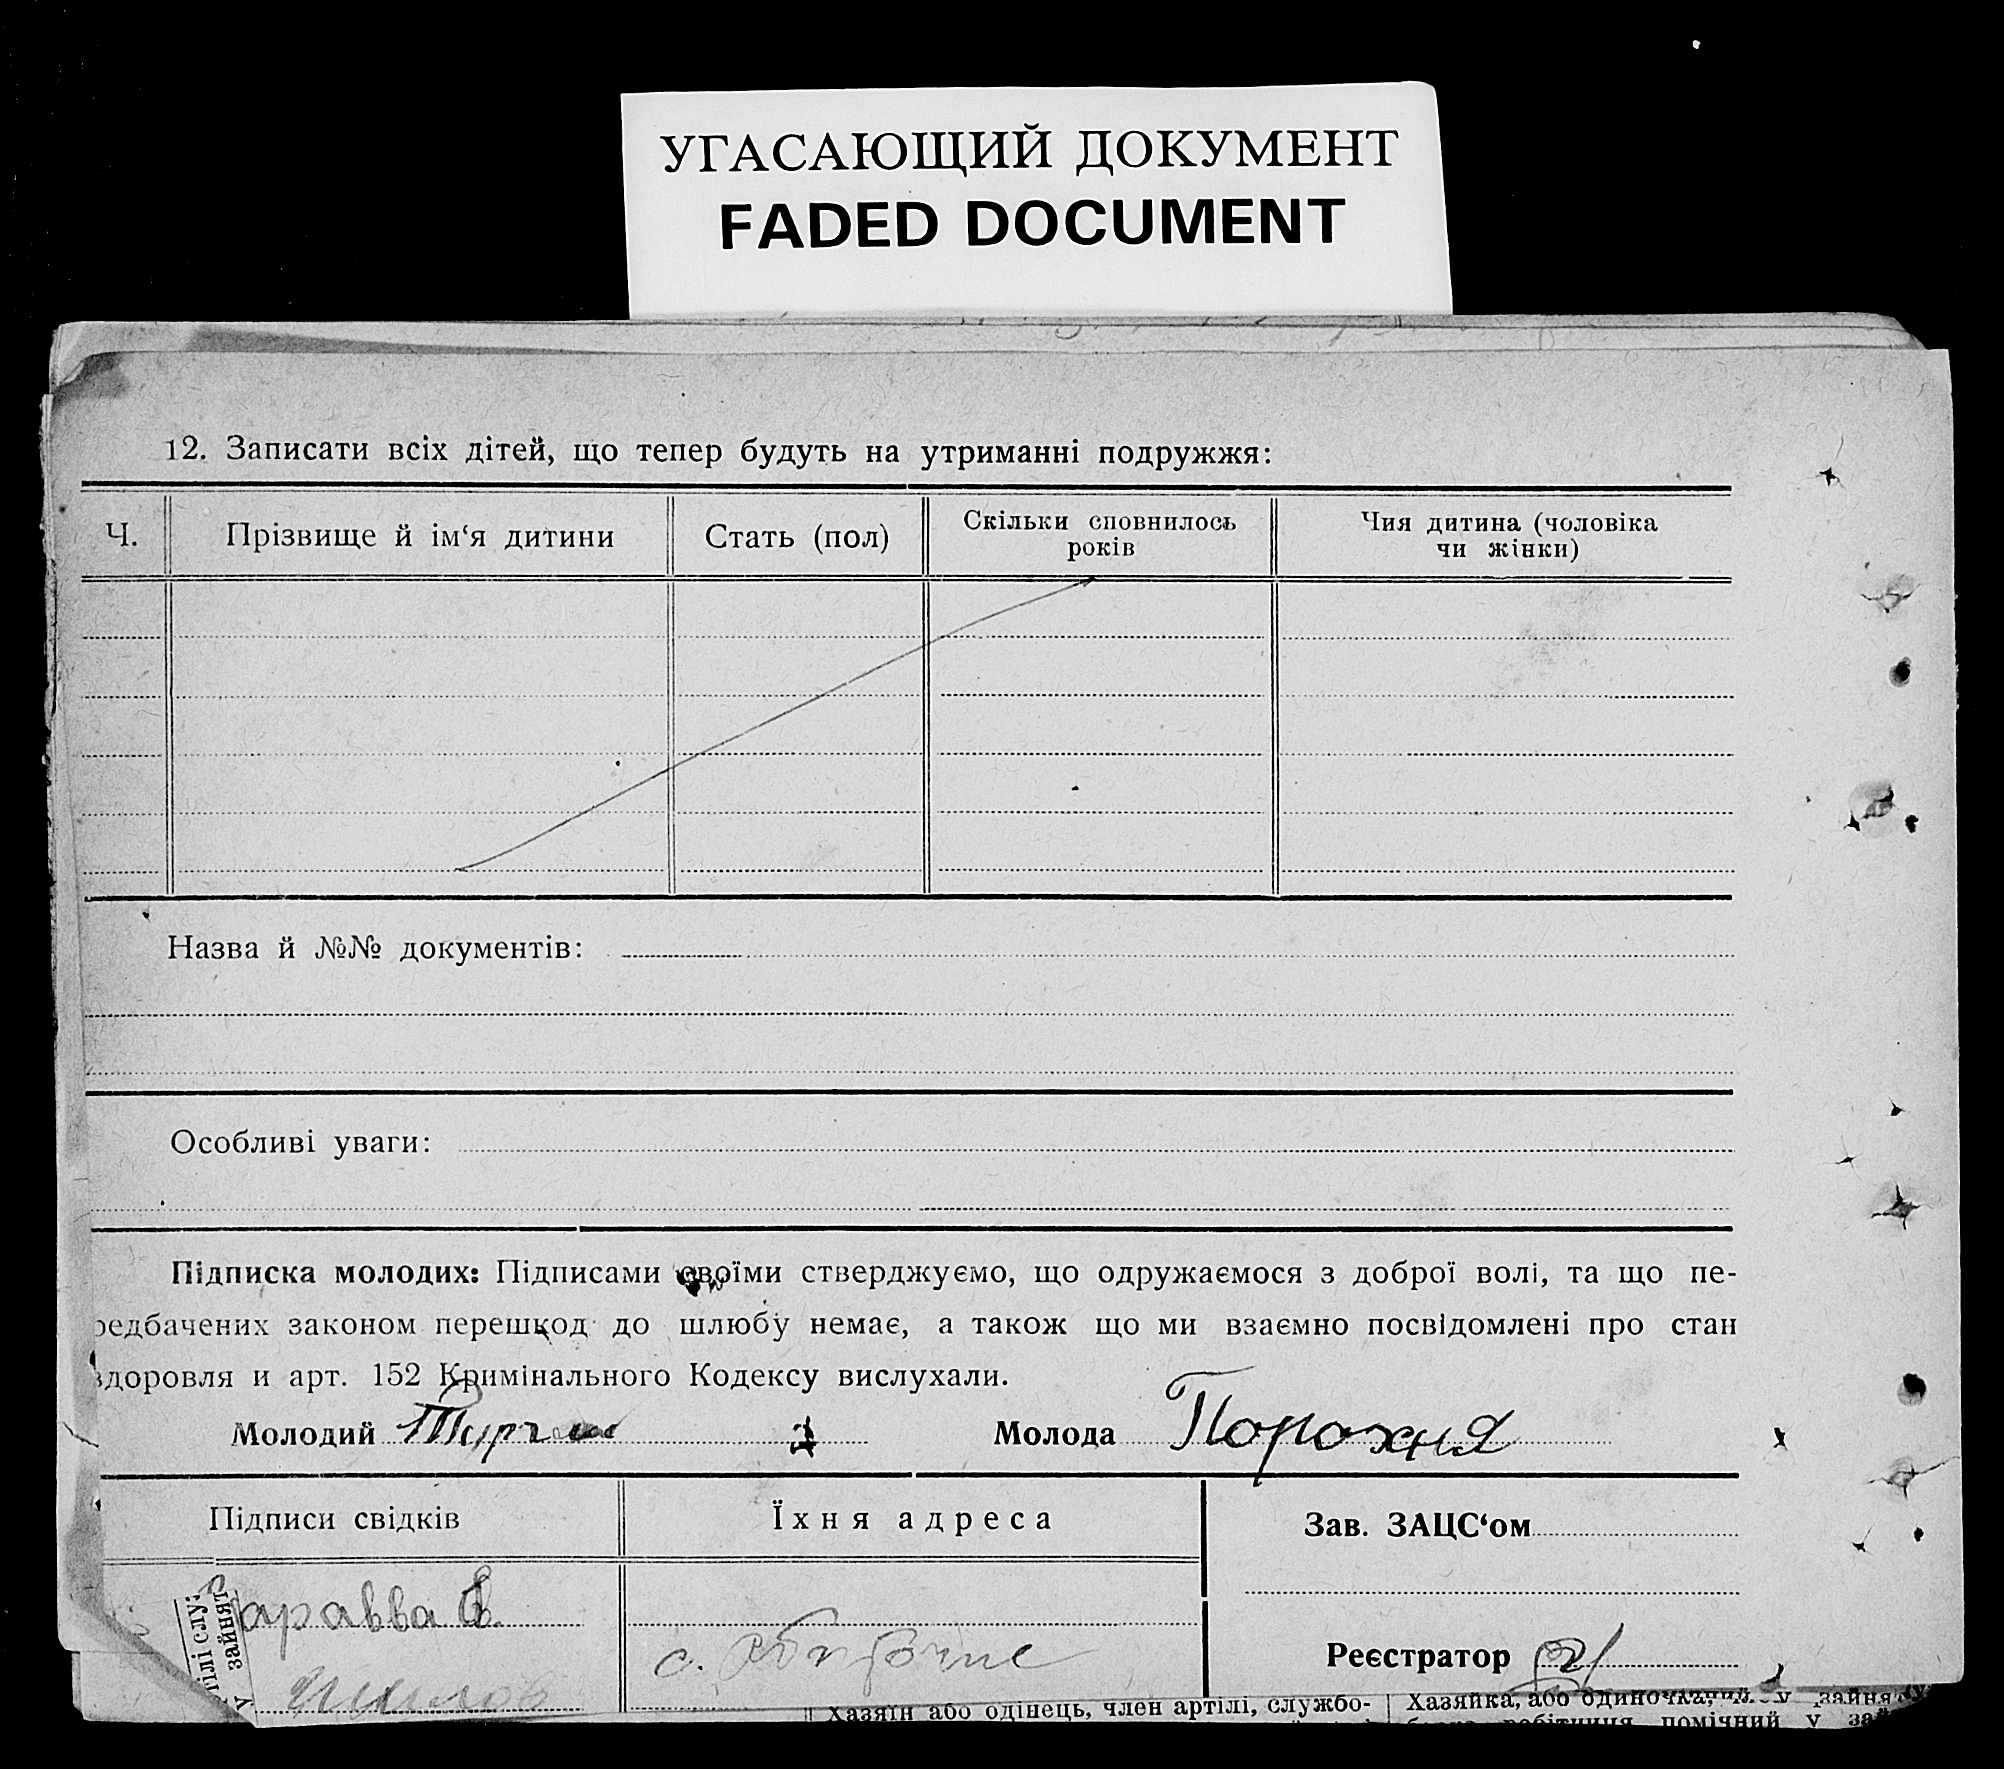 УГАСАЮЩИЙ ДОКУМЕНТ
FADED DOCUMENT
12. Записати всіх дітей, що тепер будуть на утриманні подружжя:
Ч. Прізвище й ім‘я дитини Стать (пол) Скільки сповнилось Чия дитина (чоловіка
років чи жінки)
Назва й №№ документів:
Особливі уваги:
Підписка молодих: Підписами своїми стверджуємо, що одружаємося з доброї волі, та що пе-
редбачених законом перешкод до шлюбу немає, а також що ми взаємно посвідомлені про стан
здоровля и арт. 152 Кримінального Кодексу вислухали.
Молодий Молода Порохня
Підписи свідків Їхня адреса Зав. ЗАЦС‘ом
с.
Реєстратор
Хазяїн або одінець, член артілі, службо-
Хазяйка, або у зайня
помічний у